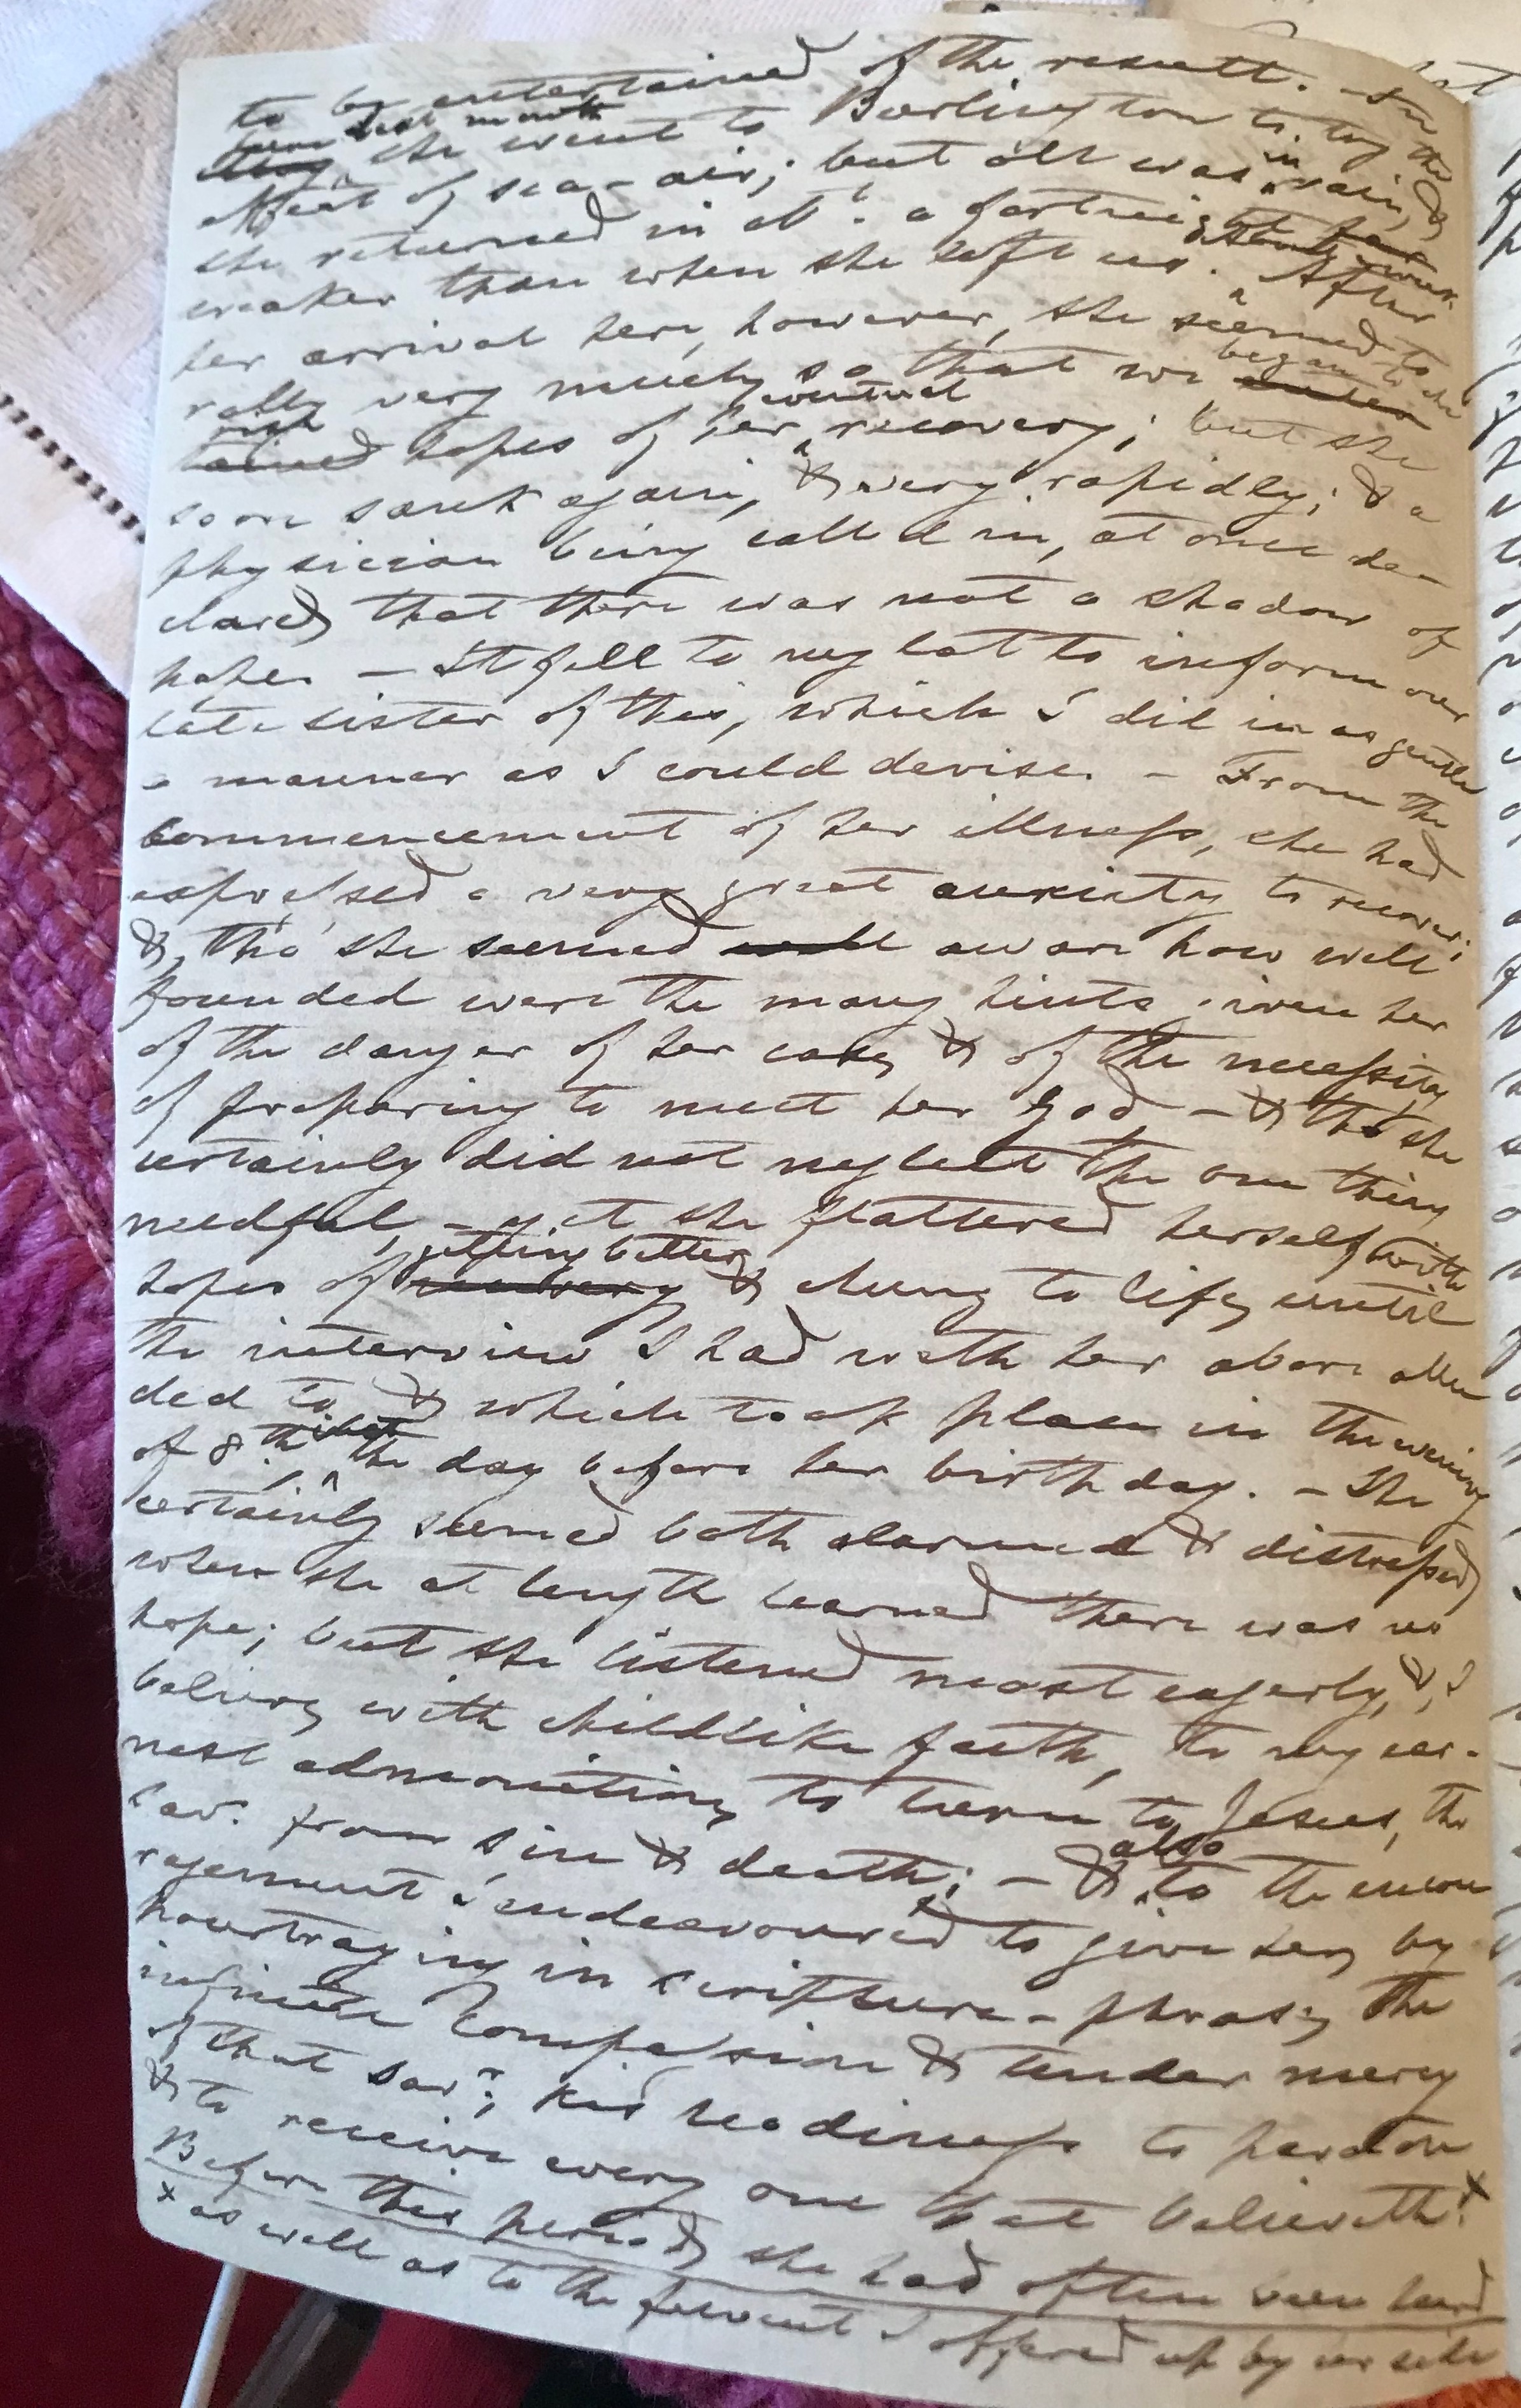 to be entertained of the result. - In the
last month
she went to Burlington to try the
effect of sea-air; but all was in vain, &
she returned in abt. a fortnight far
weaker than when she left us. After
her arrival here, however, she seemed to
rally very much, so that we began to che
rish eventual
tained hopes of her recovery; but she
soon sank again, & very rapidly; & a
physician being called in, at once de-
clared that there was not a shadow of
hope. - It fell to my lot to inform our
late sister of this, which I did in as gentle
a manner as I could devise. - From the
commencement of her illness, she had
expressed a very great anxiety to recover;
&, tho' she seemed well aware how well
founded were the many hints given her
of the danger of her case, & of the necessity
of preparing to meet her God - & tho' she
certainly did not neglect the one thing
needful, - yet she flattered herself with
getting better
hopes of recovery & clung to life, until
the interview I had with her above allu
ded to, & which took place in the evening
of 8th inst. the day before her birthday. - She
certainly seemed both alarmed & distressed
when she at length learned there was no
hope; but she listened most eagerly, &, I
believe, with childlike faith, to my ear-
nest admonition, to turn to Jesus, the
Savr. from sin & death; - & also to the encou
ragement I endeavoured to give her, by
pourtraying in scripture-phrase, the
infinite compassion & tender mercy
of that Savr; his readiness to pardon
& to receive every one that believeth. x
Before this period, she had often been heard
x as well as to the fervent I offered up by her side